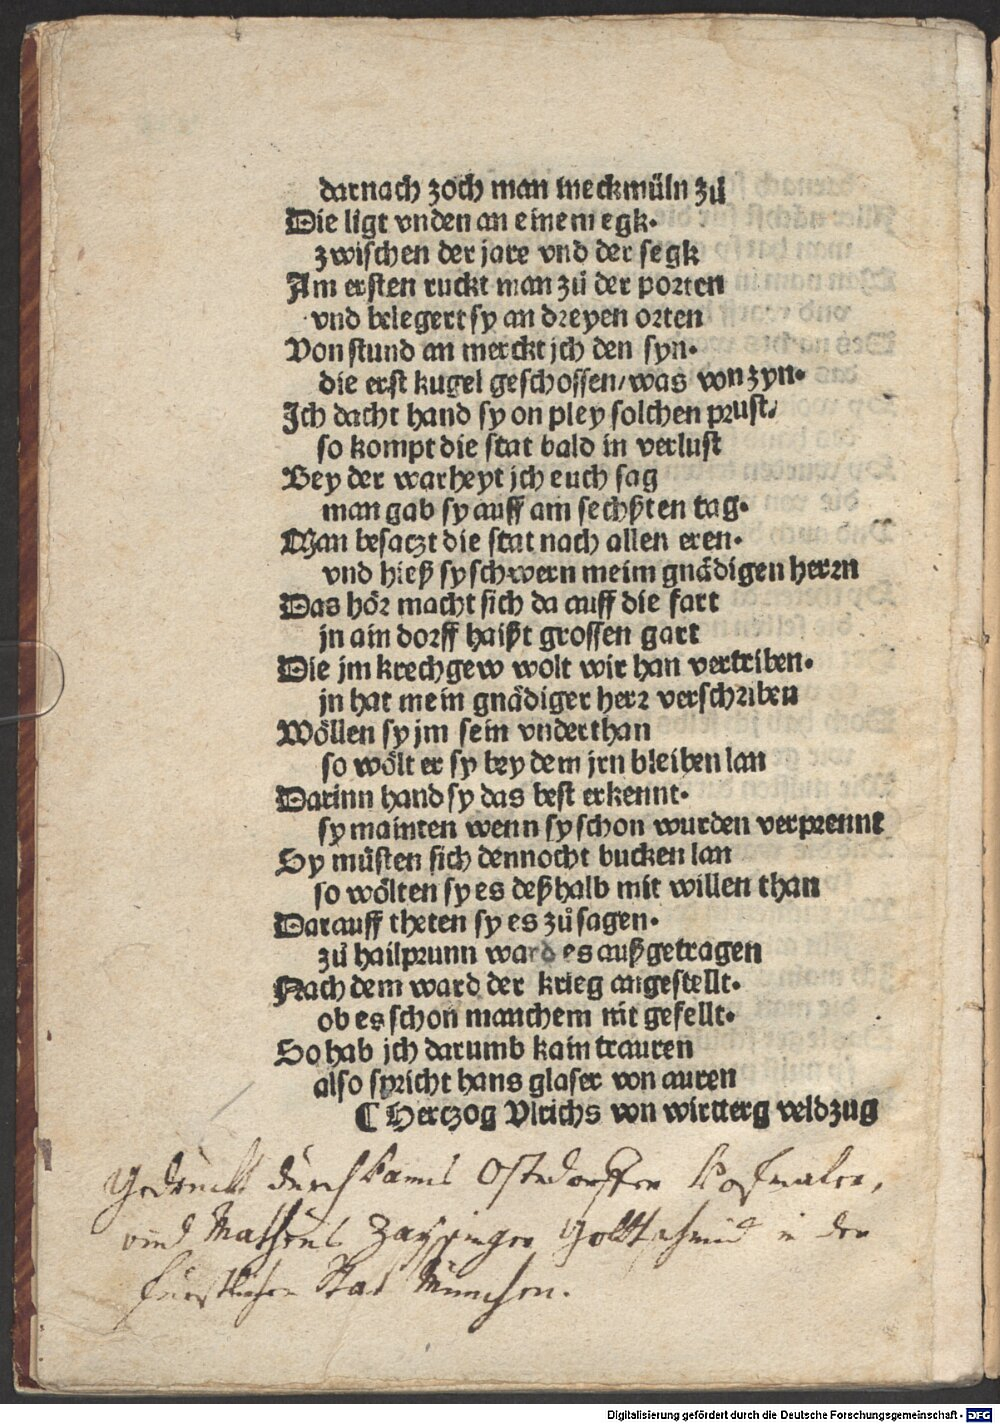 darnach zoch man meckmüln zů
Die ligt vnden an einem egk.
zwischen der jare vnd der segk
Am ersten ruckt man zů der porten
vnd belegert sy an dreyen orten
Von stund an merckt jch den syn.
die erst kugel geschossen/ was von zyn.
Ich dacht hand sy on pley solchen prust/
so kompt die stat bald in verlust
Bey der warheyt jch euch sag
man gab sy auff am sechßten tag.
Man besatzt die stat nach allen eren.
vnd hieß sy schwern meim gnådigen herrn
Das hör macht sich da auff die fart
jn ain dorff haißt grossen gart
Die jm krechgew wolt wir han vertriben.
jn hat mein gnådiger herr verschriben
Wöllen sy jm sein vnderthan
so wölt er sy bey dem jrn bleiben lan
Darinn hand sy das best erkennt.
sy mainten wenn sy schon wurden verprennt
Sy müsten sich dennocht bucken lan
so wölten sy es deßhalb mit willen than
Darauff theten sy es zůsagen.
zů hailprunn ward es außgetragen
Nach dem ward der krieg angestellt.
ob es schon manchem nit gefellt.
So hab jch darumb kain trauren
also spricht hans glaser von auren
¶ Hertzog Vlrichs von wirtterg veldzug
Gedruckt durch Hanns Ostendorffer Hofmaler,
vnd Matheus Zaysinger Goltschmid in der
Furstlichen Stat München.
Digitalisierung gefördert durch die Deutsche Forschungsgemeinschaft - DFG